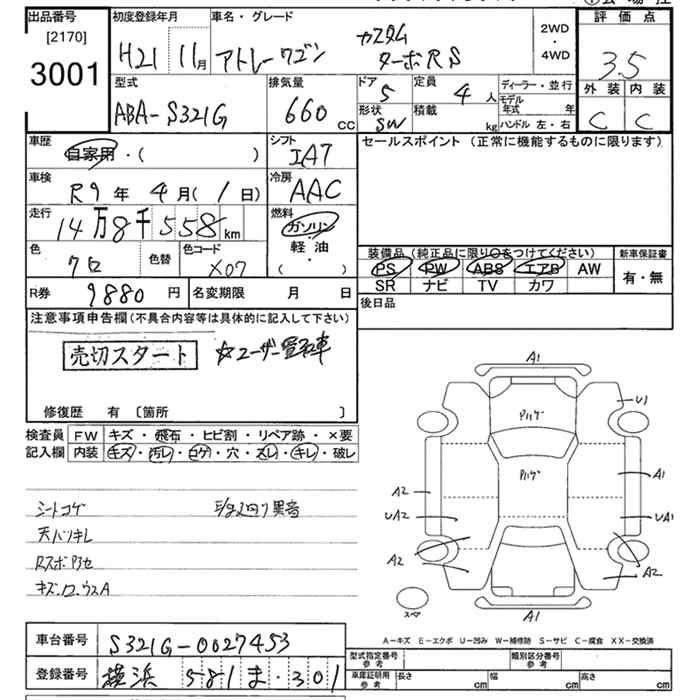 出品番号 初度登録年月 車名・グレード 2WD・4WD 評価点
[2170]
3001 H21 11月 アトレーワゴン カスタム ターボRS 3.5
型式 排気量 ドア 定員 ディーラー・並行 外装 内装
ABA-S321G 660 CC 5 4人 モデル年式 年 C C
形状 積載 kg ハンドル 左・右
SW
車歴 シフト セールスポイント (正常に機能するものに限ります)
自家用・( ) IA7
車検 冷房
R9年4月(1日) AAC
走行 燃料
14万8千558km ガソリン・軽・油( )
色 色替 色コード 装備品(純正品に限り○をつけてください) 新車保証書
クロ X07 PS PW ABS エアB AW 有・無
SR ナビ TV カワ
R券 9880円 名変期限 月 日 後日品
注意事項申告欄(不具合内容等は具体的に記入して下さい)
売切スタート ☆ユーザー買取車
修復歴 有 [箇所 ]
検査員 FW キズ・飛石・ヒビ割・リペア跡・×要
記入欄 内装 キズ・汚レ・コゲ・穴・スレ・キレ・破レ
シートコゲ
天バリキレ
A1
U1
A1
UA1
A2
A2
UA2
A2
A1
スペア
A-キズ E-エクボ U-凹み W-補修跡 S-サビ C-腐食 XX-交換済
車台番号 S321G-0027453
型式指定番号 参考 類別区分番号 参考
登録番号 横浜 581 ま ・301
車庫証明用 参考 長さ cm 幅 cm 高さ cm